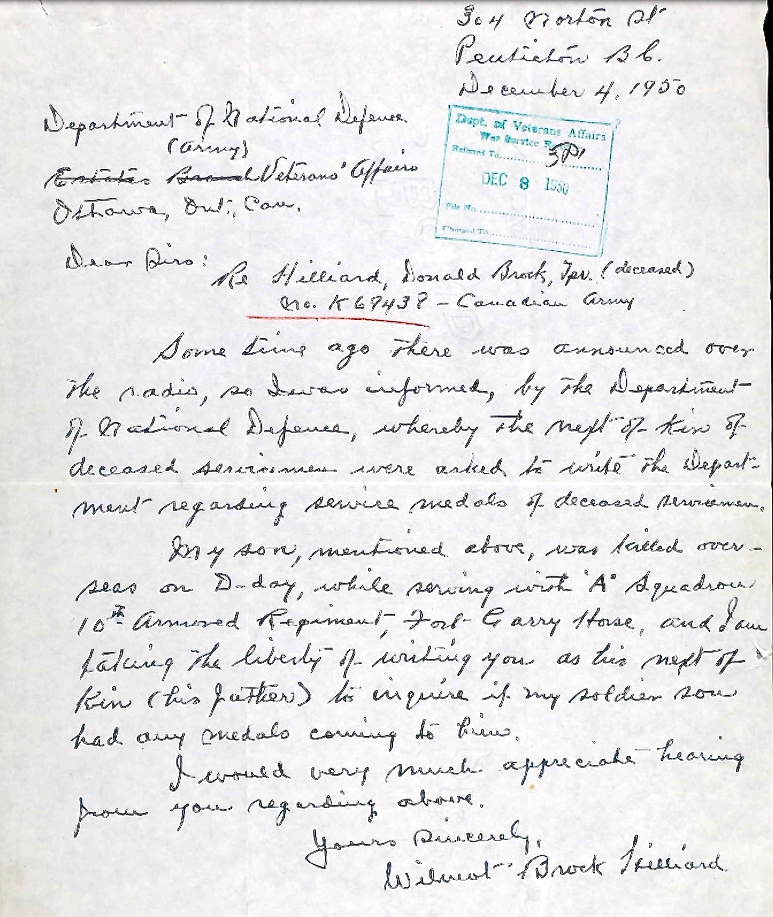 304 Norton St
Penticton B.C.
December 4, 1950
Department of National Defence
(Army)
Estates Branch Veterans' Affairs
Ottawa, Ont., Can.
Dept. of Veterans Affairs
War Service R
Referred To
DEC 8 1950
File No.
Charged To
Dear Sirs:
Re Hilliard, Donald Brock, Tpr. (deceased)
No. K67438 – Canadian Army
Some time ago there was announced over
the radio, so I was informed, by the Department
of National Defence, whereby the next of kin of
deceased servicemen were asked to write the Depart-
ment regarding service medals of deceased servicemen.
My son, mentioned above, was killed over-
seas on D-day, while serving with "A" Squadron
10th Armored Regiment, Fort Garry Horse, and I am
taking the liberty of writing you as his next of
kin (his father) to inquire if my soldier son
had any medals coming to him.
I would very much appreciate hearing
from you regarding above.
Yours Sincerely,
Wilmot Brock Hilliard